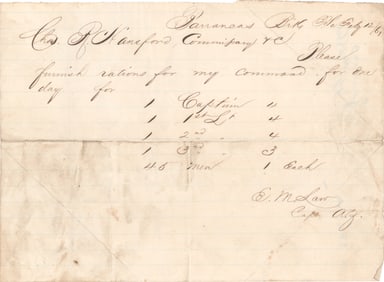 Barrancas Bks Fla Feby 12/61
Chs P. Hansford, Commissary &C
Please
furnish rations for my command for one
day for
1 Captain 4
1 1st Lt 4
1 2nd 4
1 3rd " 3
45 men 1 Each
E. M Law
Capt.